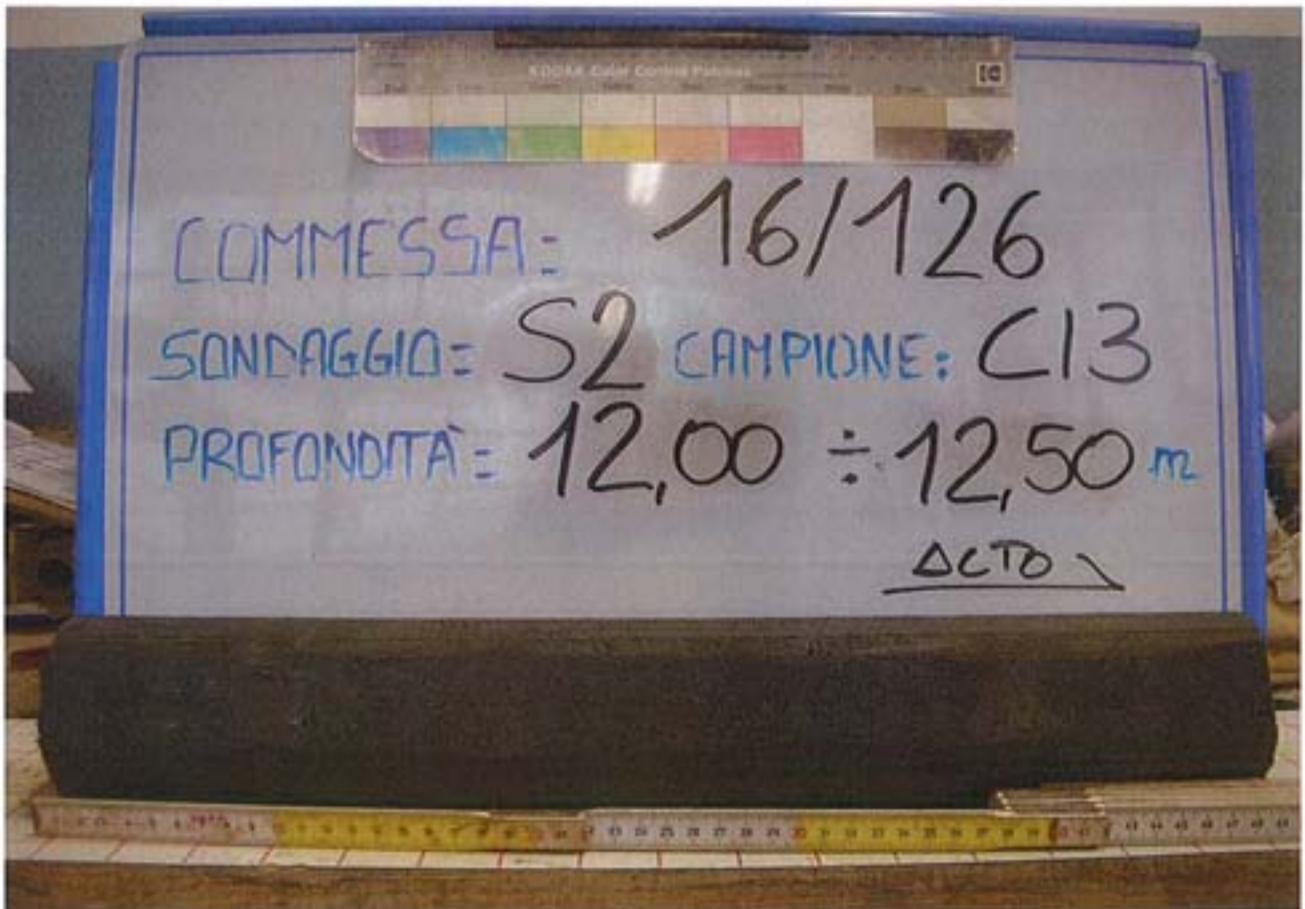 KODAK Color Control Patches
COMMESSA: 16/126
SONDAGGIO: S2 CAMPIONE: CI3
PROFONDITÀ: 12,00 ÷ 12,50 m